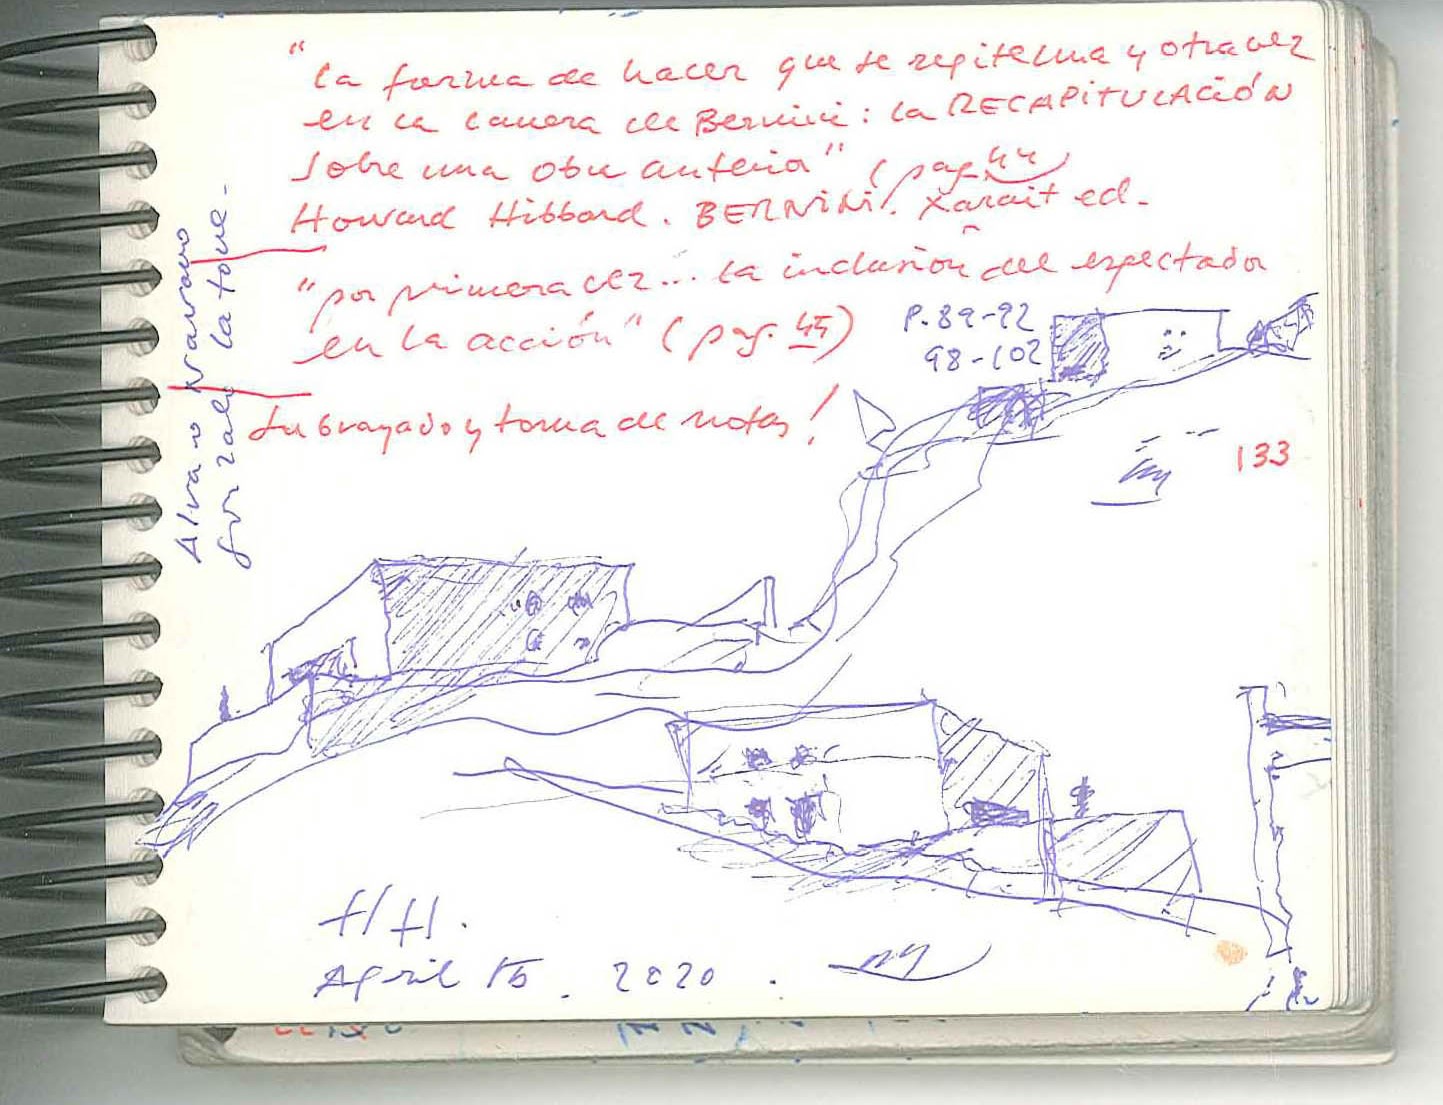 "la forma de hacer que se repite una y otra vez
en la carrera de Bernini: la RECAPITULACIÓN
sobre una obra anterior" (pag. 44)
Howard Hibbard. BERNINI. Xarait ed.
"por primera vez... la inclusión del espectador
en la acción" (pag. 45)
P. 89-92
98-102
Subrayado y toma de notas!
133
Alvaro Navarro
González la torre.
HH.
April 15. 2020.